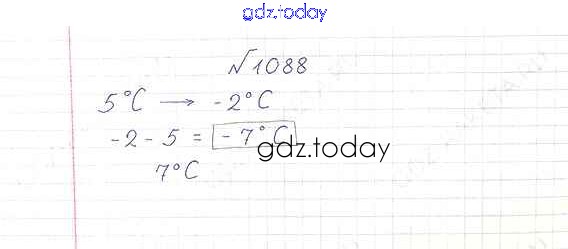 gdz.today
№1088
5°C → -2°C
-2 - 5 = -7°C
gdz.today
7°C